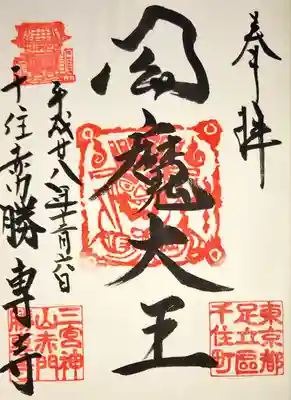 奉拝
閻魔大王
平成廿八年十二月六日
千住赤門勝専寺
東京都
足立區
千住町
三宮神
山赤門